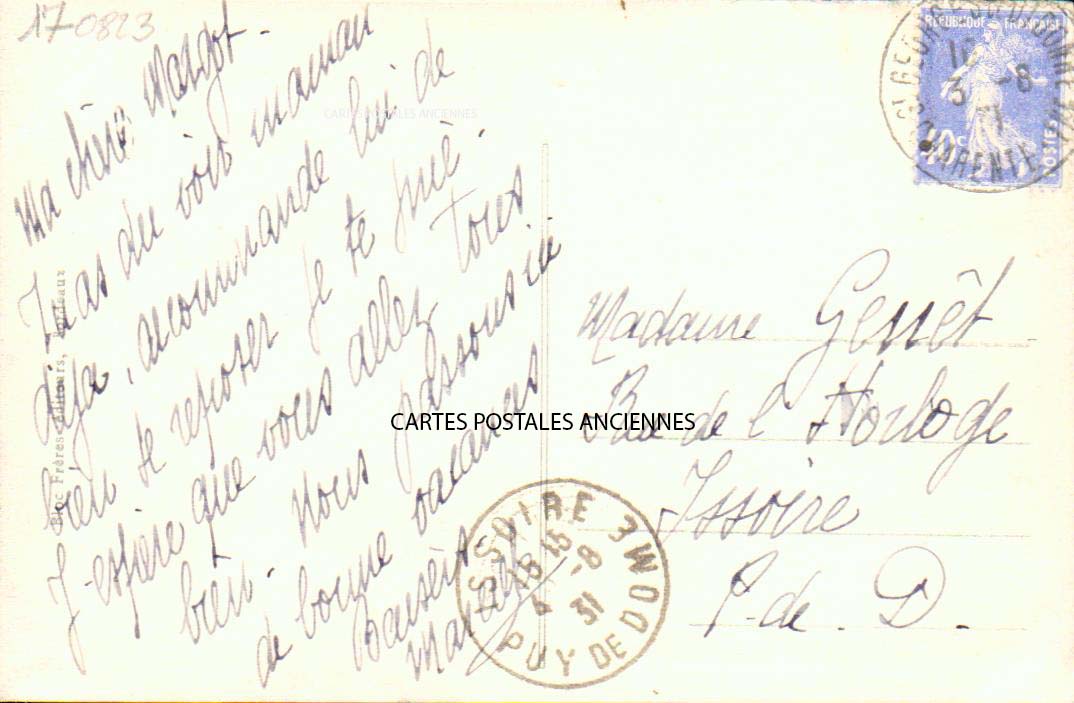 170823
Ma chère Margot -
Tu as du voir maman
déja, recommande lui de
bien se reposer je te prie.
J'espère que vous allez tous
bien. Nous passons ici
de bonne vacances
Baisers.
CARTES POSTALES ANCIENNES
CARTES POSTALES ANCIENNES
Bloc Frères Editeurs, Bordeaux
REPUBLIQUE FRANÇAISE
40c
POSTES
ST GEORGES DE DIDONNE
-8
31
CHARENTE
Madame Genêt
Rue de l'Horloge
Issoire
P. de. D.
ISSOIRE
18 15
4 -8
31
PUY DE DOME